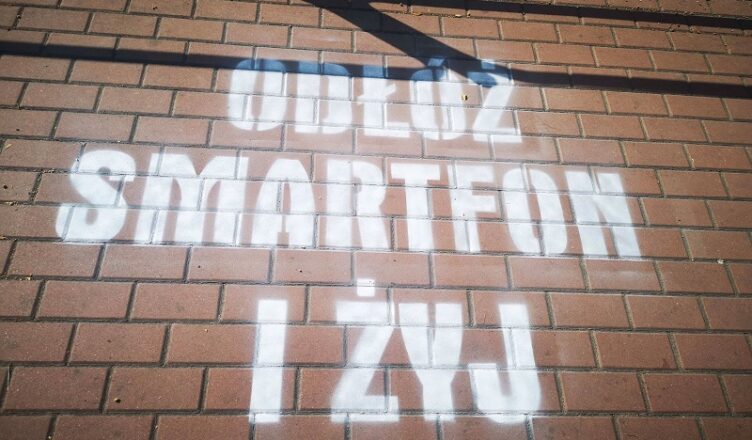 ODŁÓŻ
SMARTFON
I ŻYJ